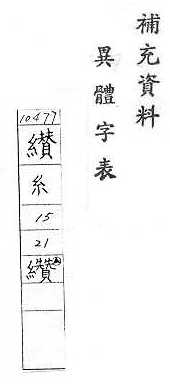 補充資料
異體字表
10477
纉
糸
15
21
纘